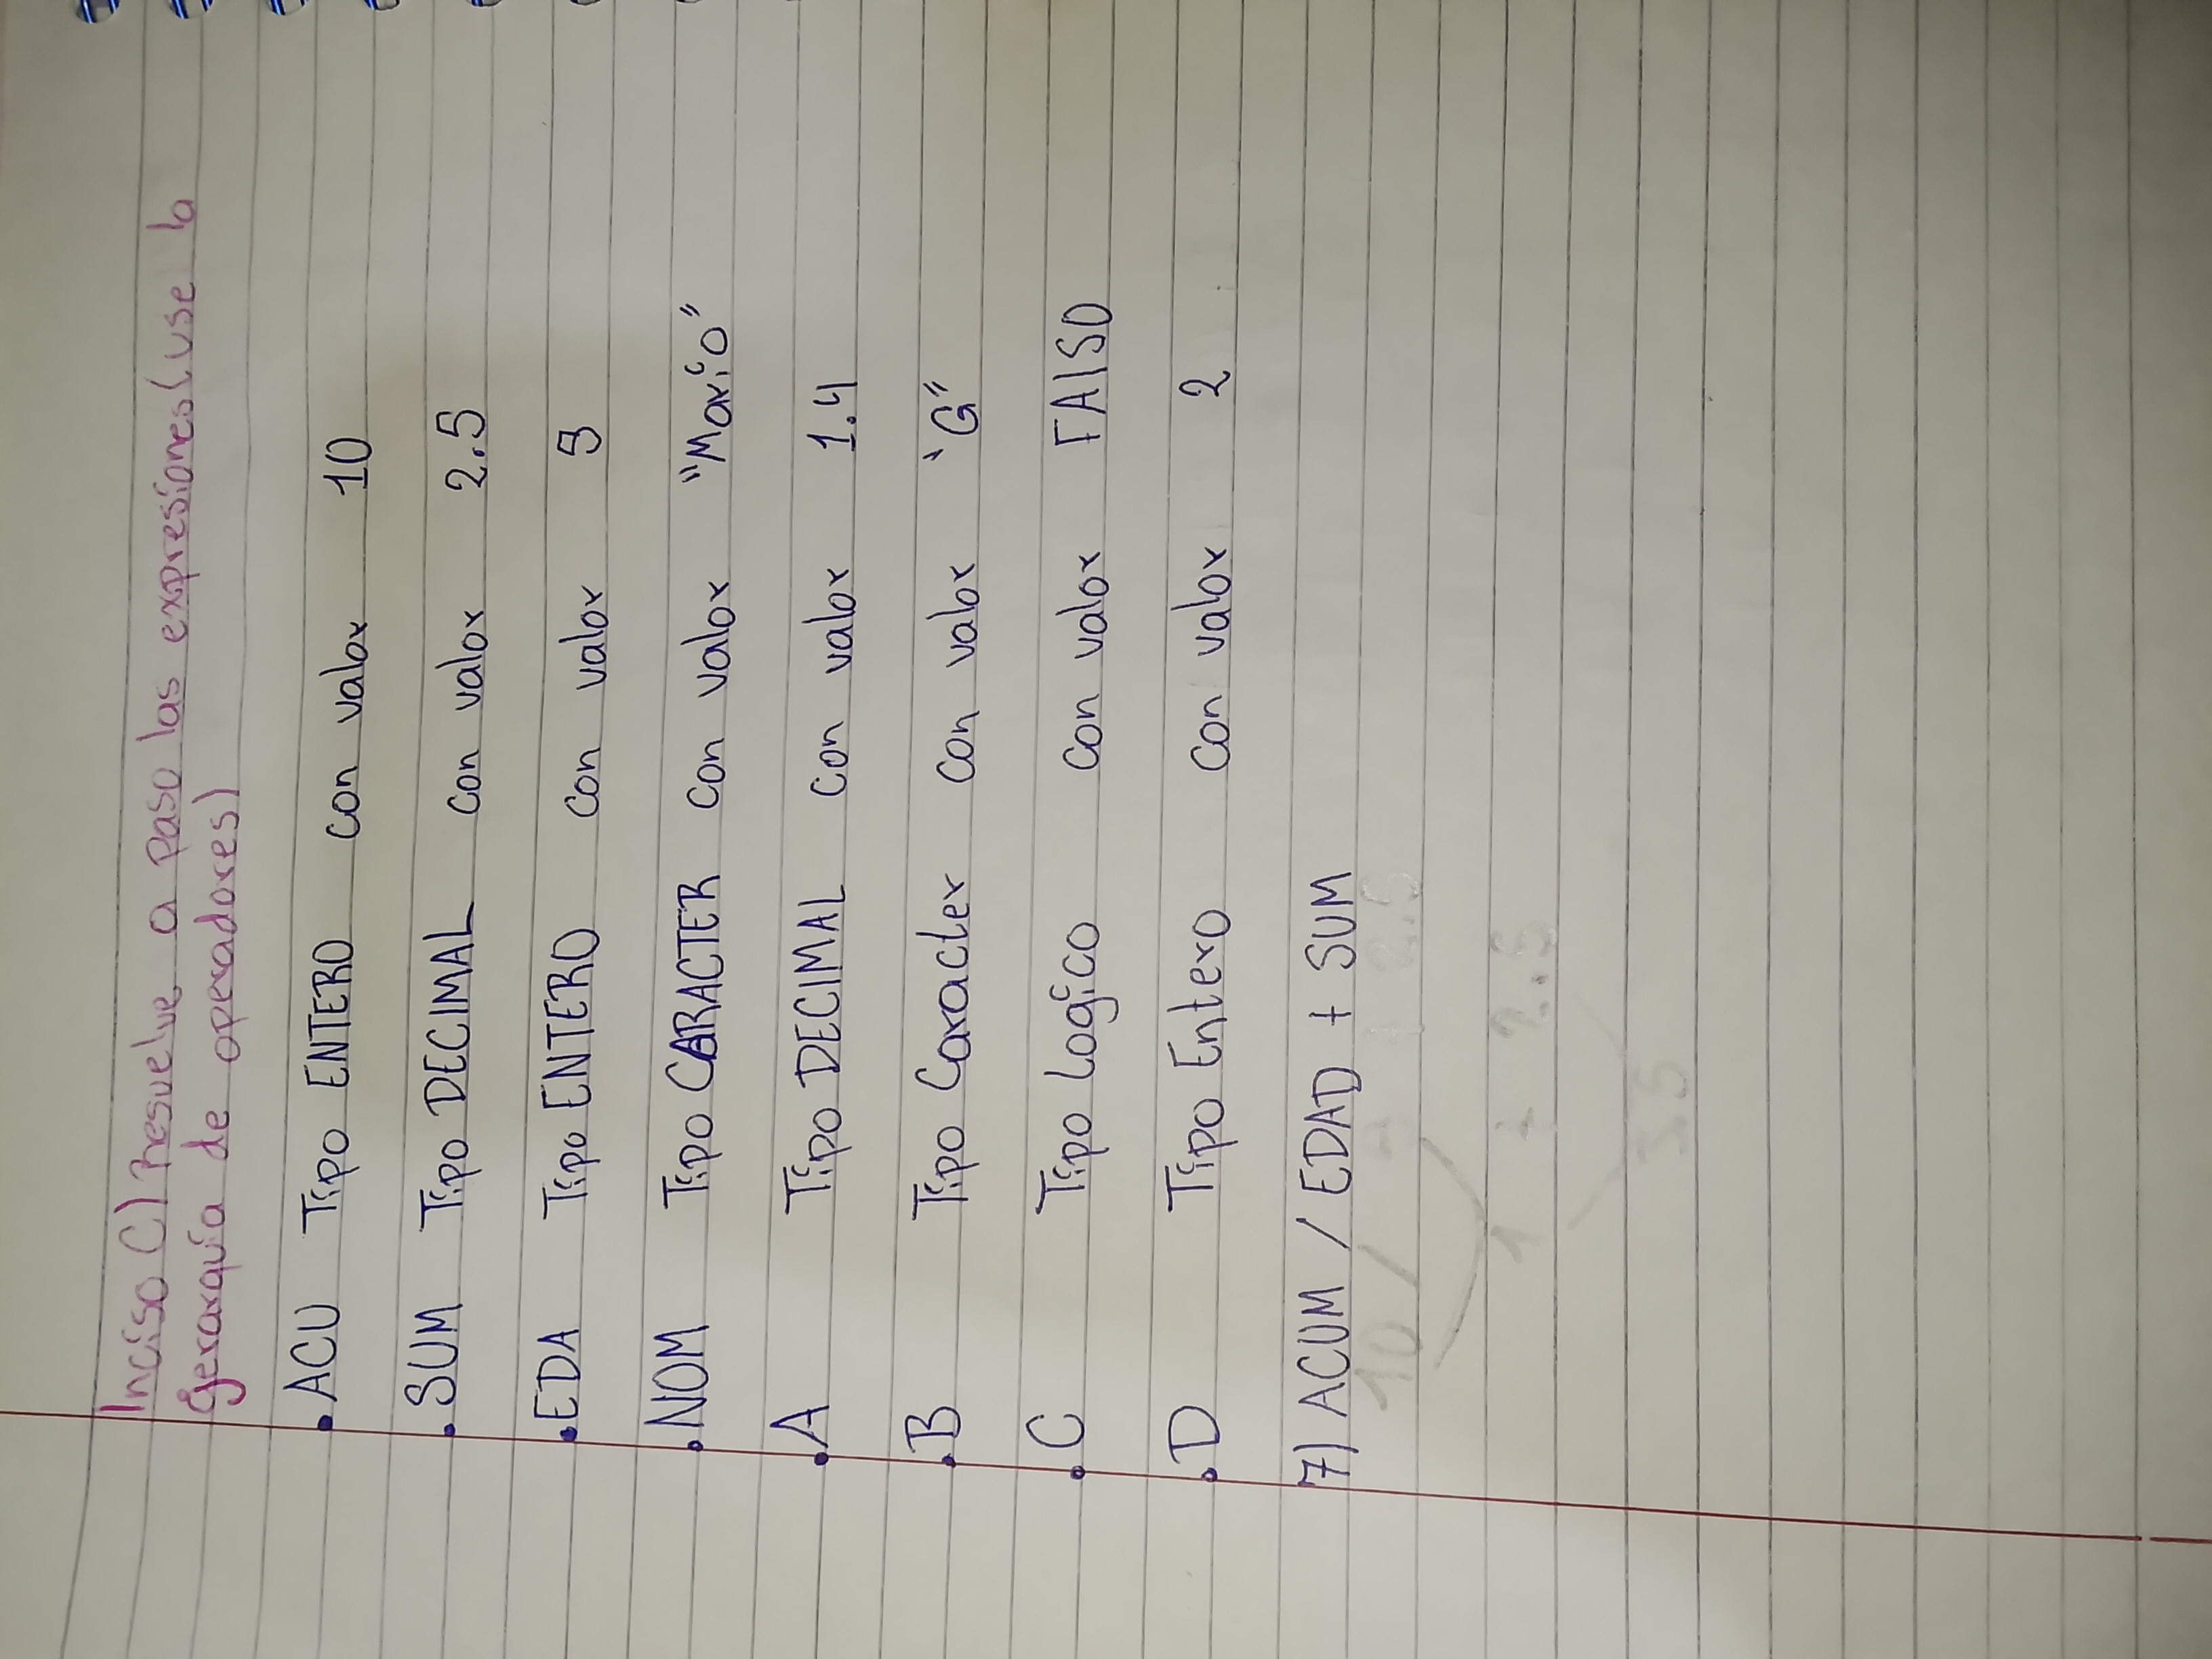 Inciso C) Resuelve a paso las expresiones (use la
gerarquía de operadores)
• ACU Tipo ENTERO con valor 10
• SUM Tipo DECIMAL con valor 2.5
• EDA Tipo ENTERO con valor 9
• NOM Tipo CARACTER con valor "Mario"
• A Tipo DECIMAL con valor 1.4
• B Tipo Caracter con valor 'G"
• C Tipo Logico con valor FALSO
• D Tipo Entero con valor 2
7) ACUM / EDAD + SUM
10 / 9 + 2.5
1 + 2.5
3.5